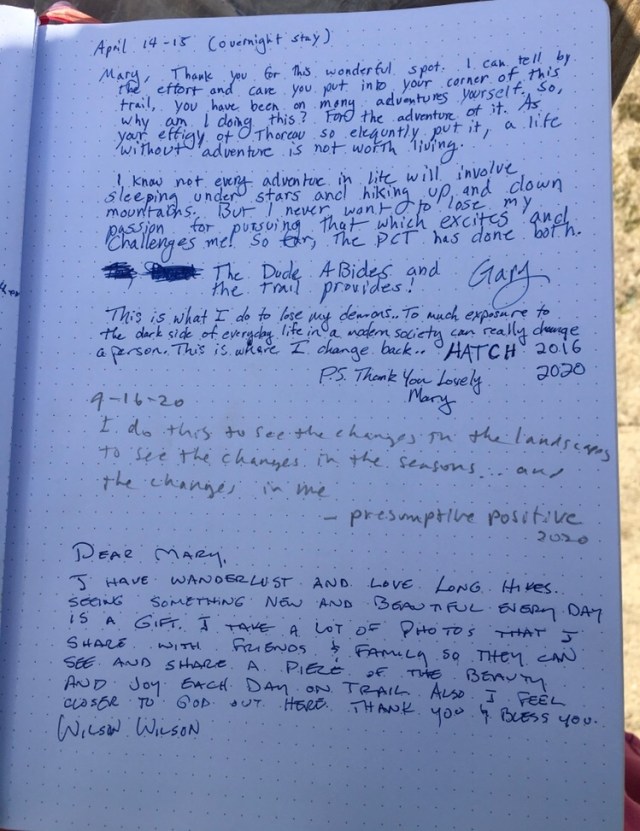 April 14-15 (overnight stay)
Mary, Thank you for this wonderful spot. I can tell by
the effort and care you put into your corner of this
trail, you have been on many adventures yourself. So,
why am I doing this? For the adventure of it. As
your effigy of Thoreau so elequntly put it, a life
without adventure is not worth living.
I know not every adventure in life will involve
sleeping under stars and hiking up and down
mountains. But I never want to lose my
passion for pursuing that which excites and
challenges me! So far, the PCT has done both.
The Dude ABides and Gary
the trail provides!
This is what I do to lose my demons.. To much exposure to
the dark side of everyday life in a modern society can really change
a person. This is where I change back.. HATCH 2016
P.S. Thank You Lovely 2020
Mary
9-16-20
I do this to see the changes in the landscapes
to see the changes in the seasons... and
the changes in me
- presumptive positive
2020
DEAR MARY,
I HAVE WANDERLUST AND LOVE LONG HIKES.
SEEING SOMETHING NEW AND BEAUTIFUL EVERY DAY
IS A GIFT. I TAKE A LOT OF PHOTOS THAT I
SHARE WITH FRIENDS & FAMILY SO THEY CAN
SEE AND SHARE A PIECE OF THE BEAUTY
AND JOY EACH DAY ON TRAIL. ALSO I FEEL
CLOSER TO GOD OUT HERE. THANK YOU & BLESS YOU.
WILSON WILSON